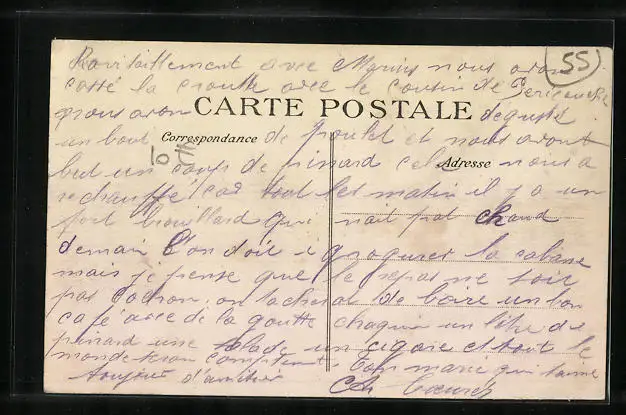 Ravitaillement avec Marius nous avons 55
cassé la croute avec le cousin de
nous avon CARTE POSTALE déguste
un bout Correspondance de poulet et nous avont
10
but un coups de pinard cela Adresse nous a
rechauffé car tout les matin il y a un
fort brouillard qui nait pat chaud
demain l'on doit i la cabane
mais je pense que le repas ne soit
pas on tachera de boire un bon
café avec de la goutte chaqun un litre de
pinard une salade un cigare et tout le
monde seron content. Ton mari qui taime
toujour d'amitier